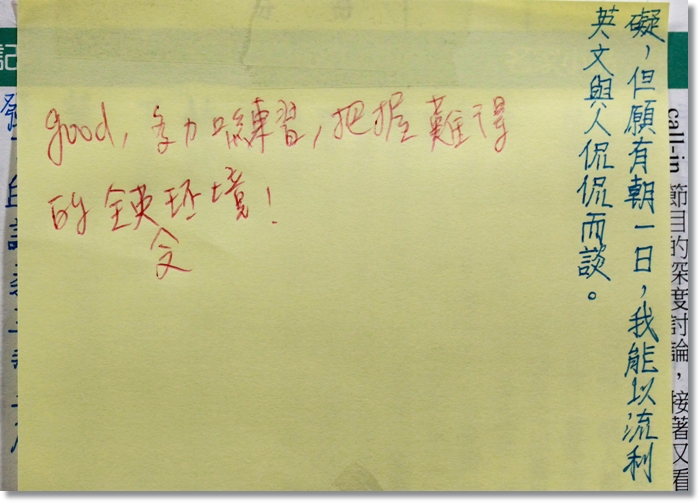 礙，但願有朝一日，我能以流利
英文與人侃侃而談。
good, 多加練習，把握難得
的全英环境！
文
節目的深度討論，接著又看
記